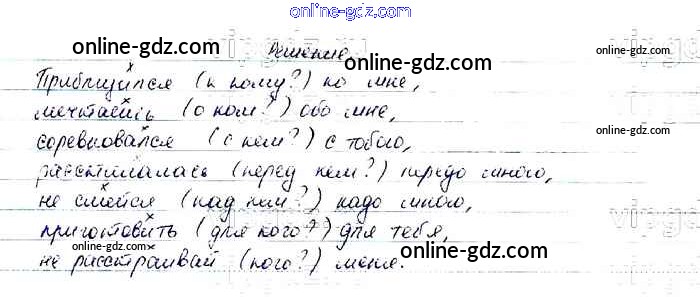 online-gdz.com
online-gdz.com Решение online-gdz.com
Приблизился (к кому?) ко мне,
мечтаешь (о ком?) обо мне,
соревновался (с кем?) с тобою,
online-gdz.com
расстилалась (перед кем?) передо мною,
не смейся (над кем?) надо мною,
приготовить (для кого?) для тебя,
online-gdz.com online-gdz.com online-gdz.com
не расстраивай (кого?) меня.